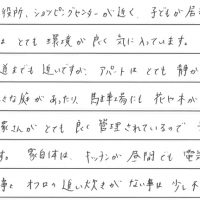 役所、ショッピングセンターが近く、子どもが居
は とても 環境が 良く 気に入っています。
道までも 近いですが、アパートは とても 静か
さな庭が あったり、駐車場にも 花や木が
家さんが とても 良く 管理されているので
す。 家自体は、キッチンが 昼間でも 電気
事と オフロの 追い炊きが ない事は 少し